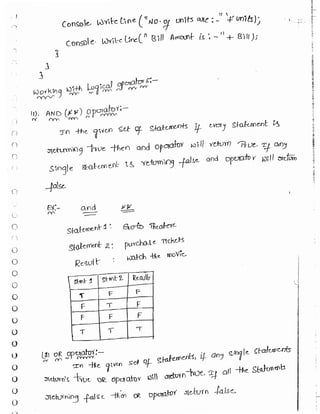 Console. WriteLine ( "No. of units are : - " + units);
Console. WriteLine( " Bill Amount is : - " + Bill );
}
}
}
Working with Logical operators:-
1). AND (&&) operator:-
In the given set of statements if every statement is
returning true then and operator will return true. If any
single statement is returning false and operator will return
false.
Ex:- and &&
Statement 1 : Go to Theatre
Statement 2 : purchase Tickets
Result : watch the movie.
Stmt 1 Stmt 2 Result
T F F
F T F
F F F
T T T
OR operator:-
In the given set of statements, if any single statements
return's true OR operator will return true. If all the statements
returning false then OR operator return false.